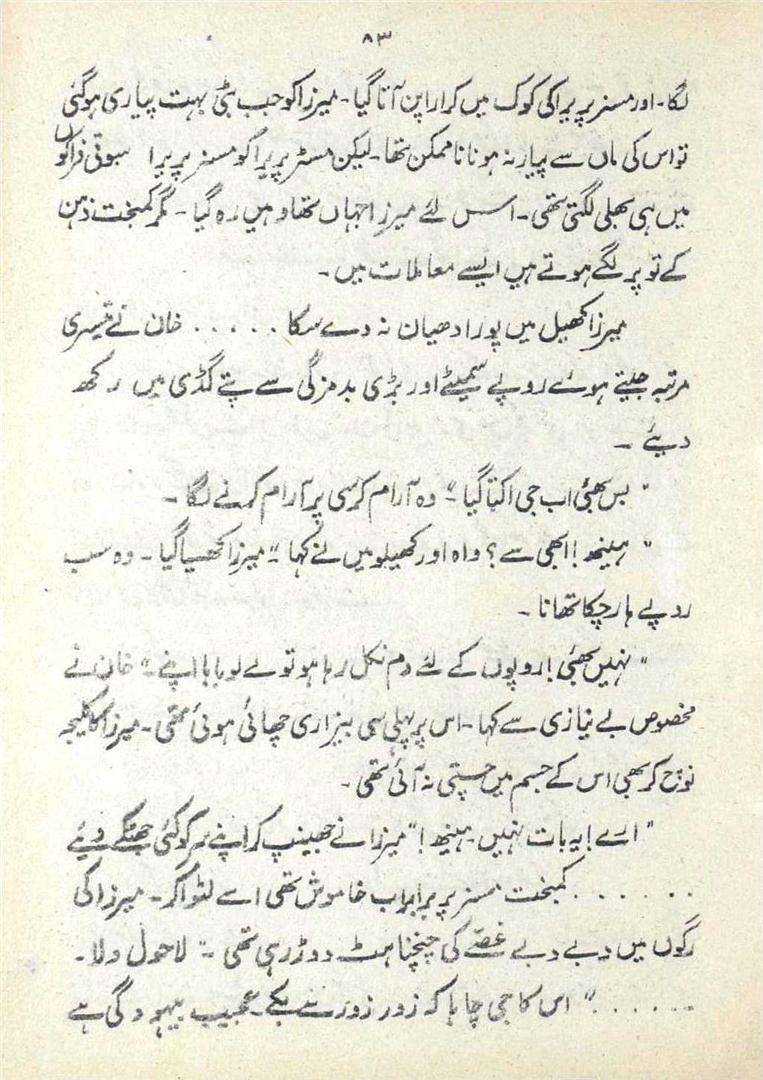 ۸۳
لگا۔ اور مسز پریرا کی کوک میں کرارا پن آتا گیا۔ میرزا کو جب بیٹی بہت پیاری ہو گئی
تو اس کی ماں سے پیار نہ ہونا ناممکن تھا۔ لیکن مسٹر پریرا کو مسز پریرا سوتی فراکوں
میں ہی بھلی لگتی تھی۔ اس لئے میرزا جہاں تھا وہیں رہ گیا۔ مگر کمبخت ذہن
کے تو پر لگے ہوتے ہیں ایسے معاملات میں۔
میرزا کھیل میں پورا دھیان نہ دے سکا ..... خان نے تیسری
مرتبہ جیتے ہوئے روپے سمیٹے اور بڑی بدمزگی سے پتے گڈی میں رکھ
دیئے ۔
" بس بھئی اب جی اکتا گیا " وہ آرام کرسی پر آرام کرنے لگا ۔
" ہیئھ ! ابھی سے ؟ واہ اور کھیلو میں نے کہا " میرزا کھسیا گیا ۔ وہ سب
روپے ہار چکا تھا نا ۔
" نہیں بھئی ! روپوں کے لئے دم نکل رہا ہو تو لے لو بابا اپنے ۔" خان نے
مخصوص بے نیازی سے کہا ۔ اس پر پہلی سی بیزاری چھائی ہوئی تھی ۔ میرزا کا کلیجہ
نوچ کر بھی اس کے جسم میں چستی نہ آئی تھی ۔
" ارے ! یہ بات نہیں ۔ ہیئھ !" میرزا نے جھینپ کر اپنے سر کو کئی جھٹکے دیئے
...... کمبخت مسز پریرا اب خاموش تھی اسے لٹوا کر ۔ میرزا کی
رگوں میں دبے دبے غصّے کی چنچناہٹ دوڑ رہی تھی ۔" لاحول ولا ۔
......" اس کا جی چاہا کہ زور زور سے بکے ۔ عجیب بیہودگی ہے